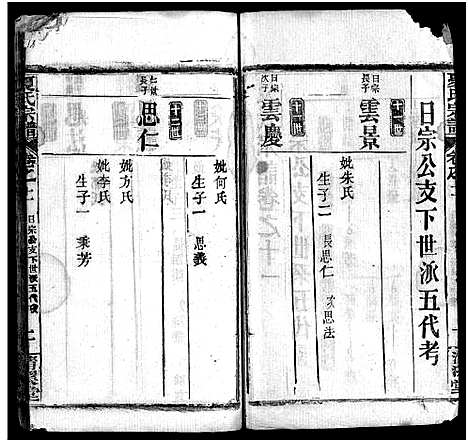 夏氏宗譜
日宗公支下世派五代考
十一世
日宗長子
雲景
妣朱氏
生子二 長思仁 次思法
十一世
日宗次子
雲慶
妣何氏
生子一 思義
十二世
長子
思仁
妣方氏
妣李氏
生子一 秉芳
氏宗譜
卷之十一
日宗公支下世派五代考